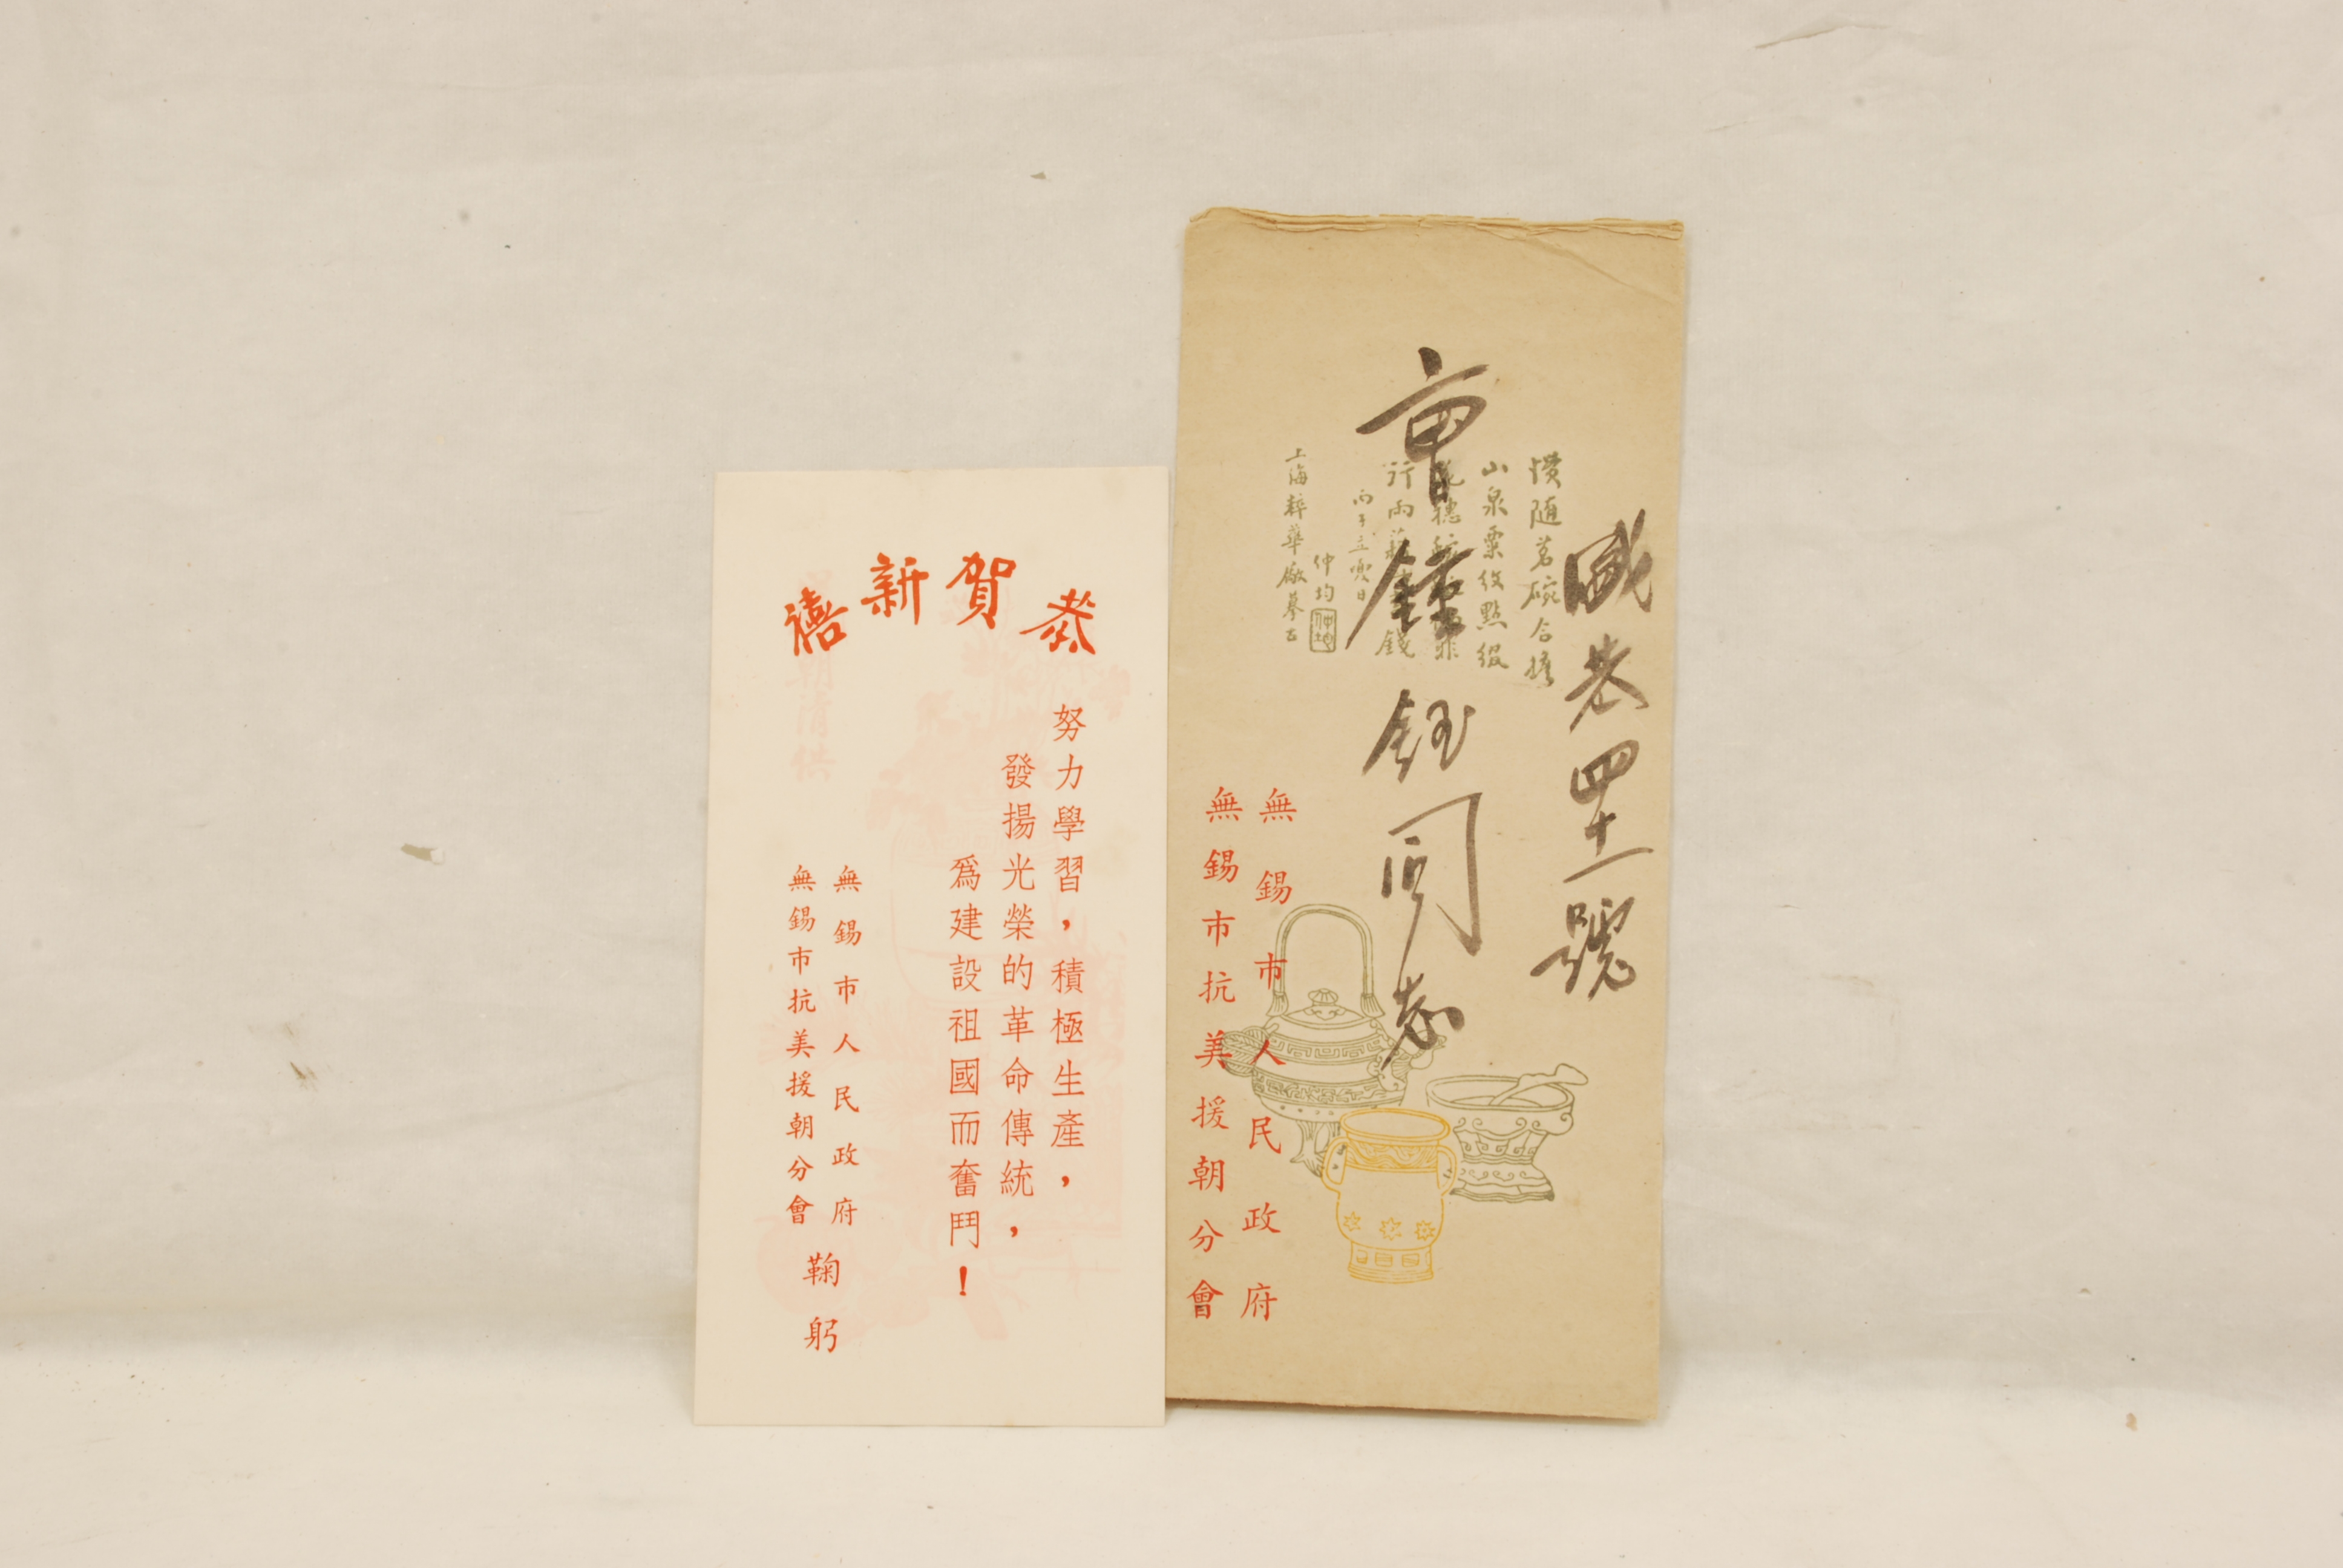 恭賀新禧
努力學習，積極生產，
發揚光榮的革命傳統，
爲建設祖國而奮鬥！
無錫市人民政府
無錫市抗美援朝分會
鞠躬
朝清供
號
鈺同志
慣隨茗碗合
山泉粟紋點綴
行雨
錢
丙子
日
仲均
仲均
上海粹華廠摹古
無錫市人民政府
無錫市抗美援朝分會